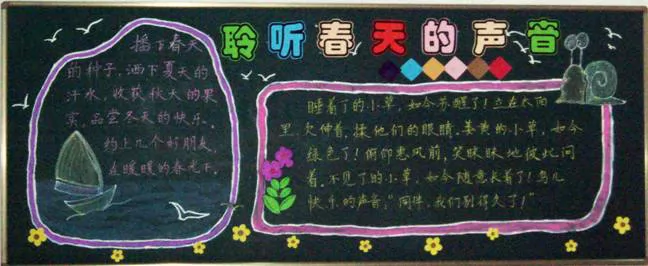 聆听春天的声音
播下春天
的种子,洒下夏天的
汗水,收获秋天的果
实,品尝冬天的快乐。
约上几个好朋友,
在暖暖的春光下。
睡着了的小草,如今苏醒了!立在太阳
里,欠伸着,揉他们的眼睛。萎黄的小草,如今
绿色了!俯仰惠风前,笑眯眯地彼此问
着。不见了的小草,如今随意长着了!鸟儿
快乐的声音,"同伴,我们别得久了!"